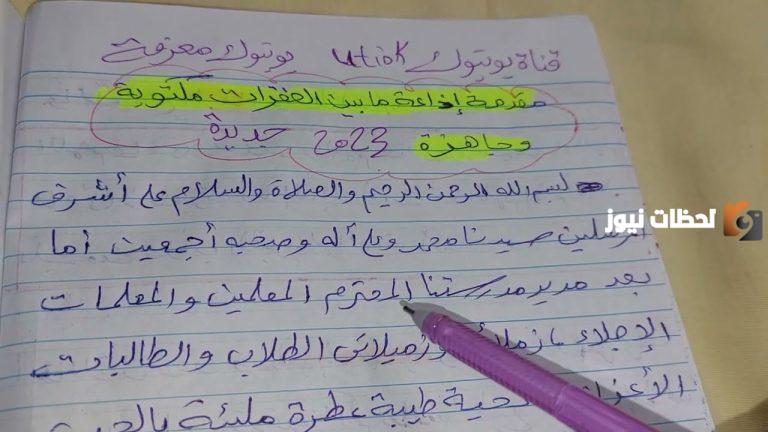 قناة يوتيوك utiok يوتوك معرفة
مقدمة إذاعة ما بين الفقرات مكتوبة
وجاهزة 2023 جديدة
بسم الله الرحمن الرحيم والصلاة والسلام على أشرف
لحظات نيوز
المرسلين سيدنا محمد وعلى آله وصحبه أجمعين أما
بعد مدير مدرستنا المحترم المعلمين والمعلمات
الإجلاء وزميلاتي الطلاب والطالبات
تحية طيبة عطرة مليئة